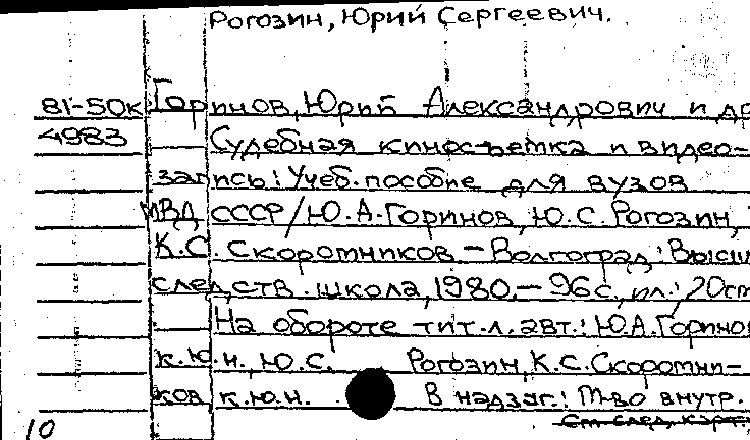 Рогозин, Юрий Сергеевич.
81-50к Горинов, Юрий Александрович и др
4983 Судебная киносъемка и видео-
запись: Учеб. пособие для вузов
МВД СССР/Ю.А.Горинов, Ю.С.Рогозин,
К.С.Скоротников – Волгоград: Высш
следств. школа, 1980. – 96с., ил.; 20см
На обороте тит.л. авт.: Ю.А.Горинов
к.ю.н., Ю.С. Рогозин, К.С.Скоротни-
ков к.ю.н. В надзаг.: М-во внутр.
См. след. карт.
10